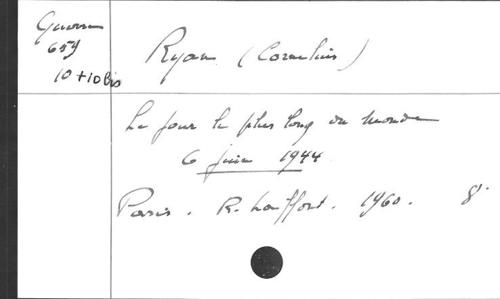 Guerre
659
10 + 10 bis
Ryan (Cornelius)
Le jour le plus long du monde
6 juin 1944
Paris. R. Laffont. 1960. 8°